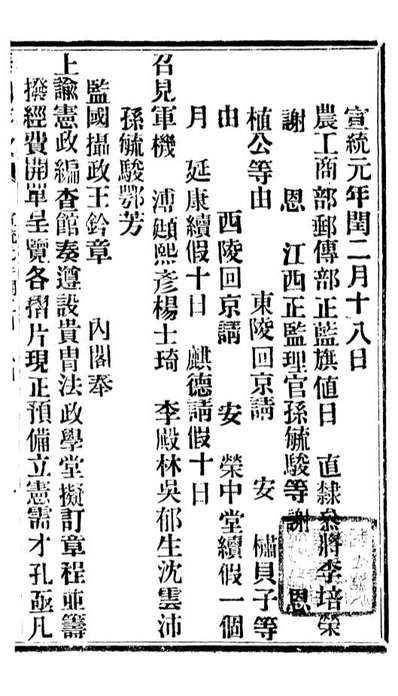 宣統元年閏二月十八日
農工商部郵傳部正藍旗值日 直隸叅將李培榮
謝 恩 江西正監理官孫毓駿等謝 恩
植公等由 東陵回京請 安 橚貝子等
由 西陵回京請 安 榮中堂續假一個
月 延康續假十日 麒德請假十日
召見軍機 溥頲熙彥楊士琦 李殿林吳郁生沈雲沛
孫毓駿鄂芳
監國攝政王鈐章 內閣奉
上諭憲政編查館奏遵設貴胄法政學堂擬訂章程並籌
撥經費開單呈覽各摺片現正預備立憲需才孔亟凡